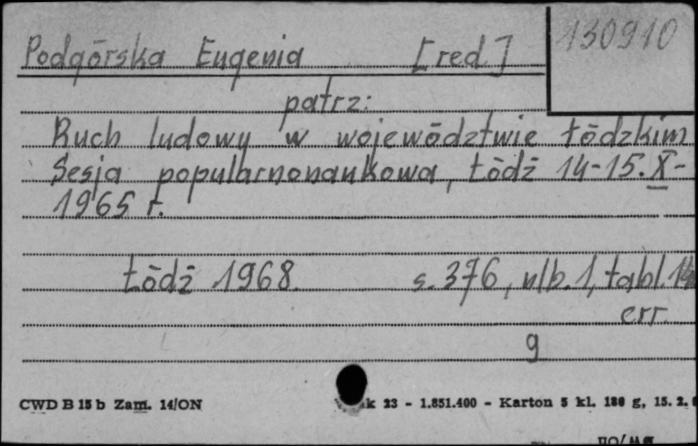 130910
Podgórska Eugenia [red.]
patrz:
Ruch ludowy w województwie łódzkim
Sesja popularnonaukowa, Łódź 14-15.X-
1965 r.
Łódź 1968. s. 376, nlb. 1, tabl.
err.
g
CWD B 15 b Zam. 14/ON k 23 - 1.851.400 - Karton 5 kl. 180 g, 15. 2.